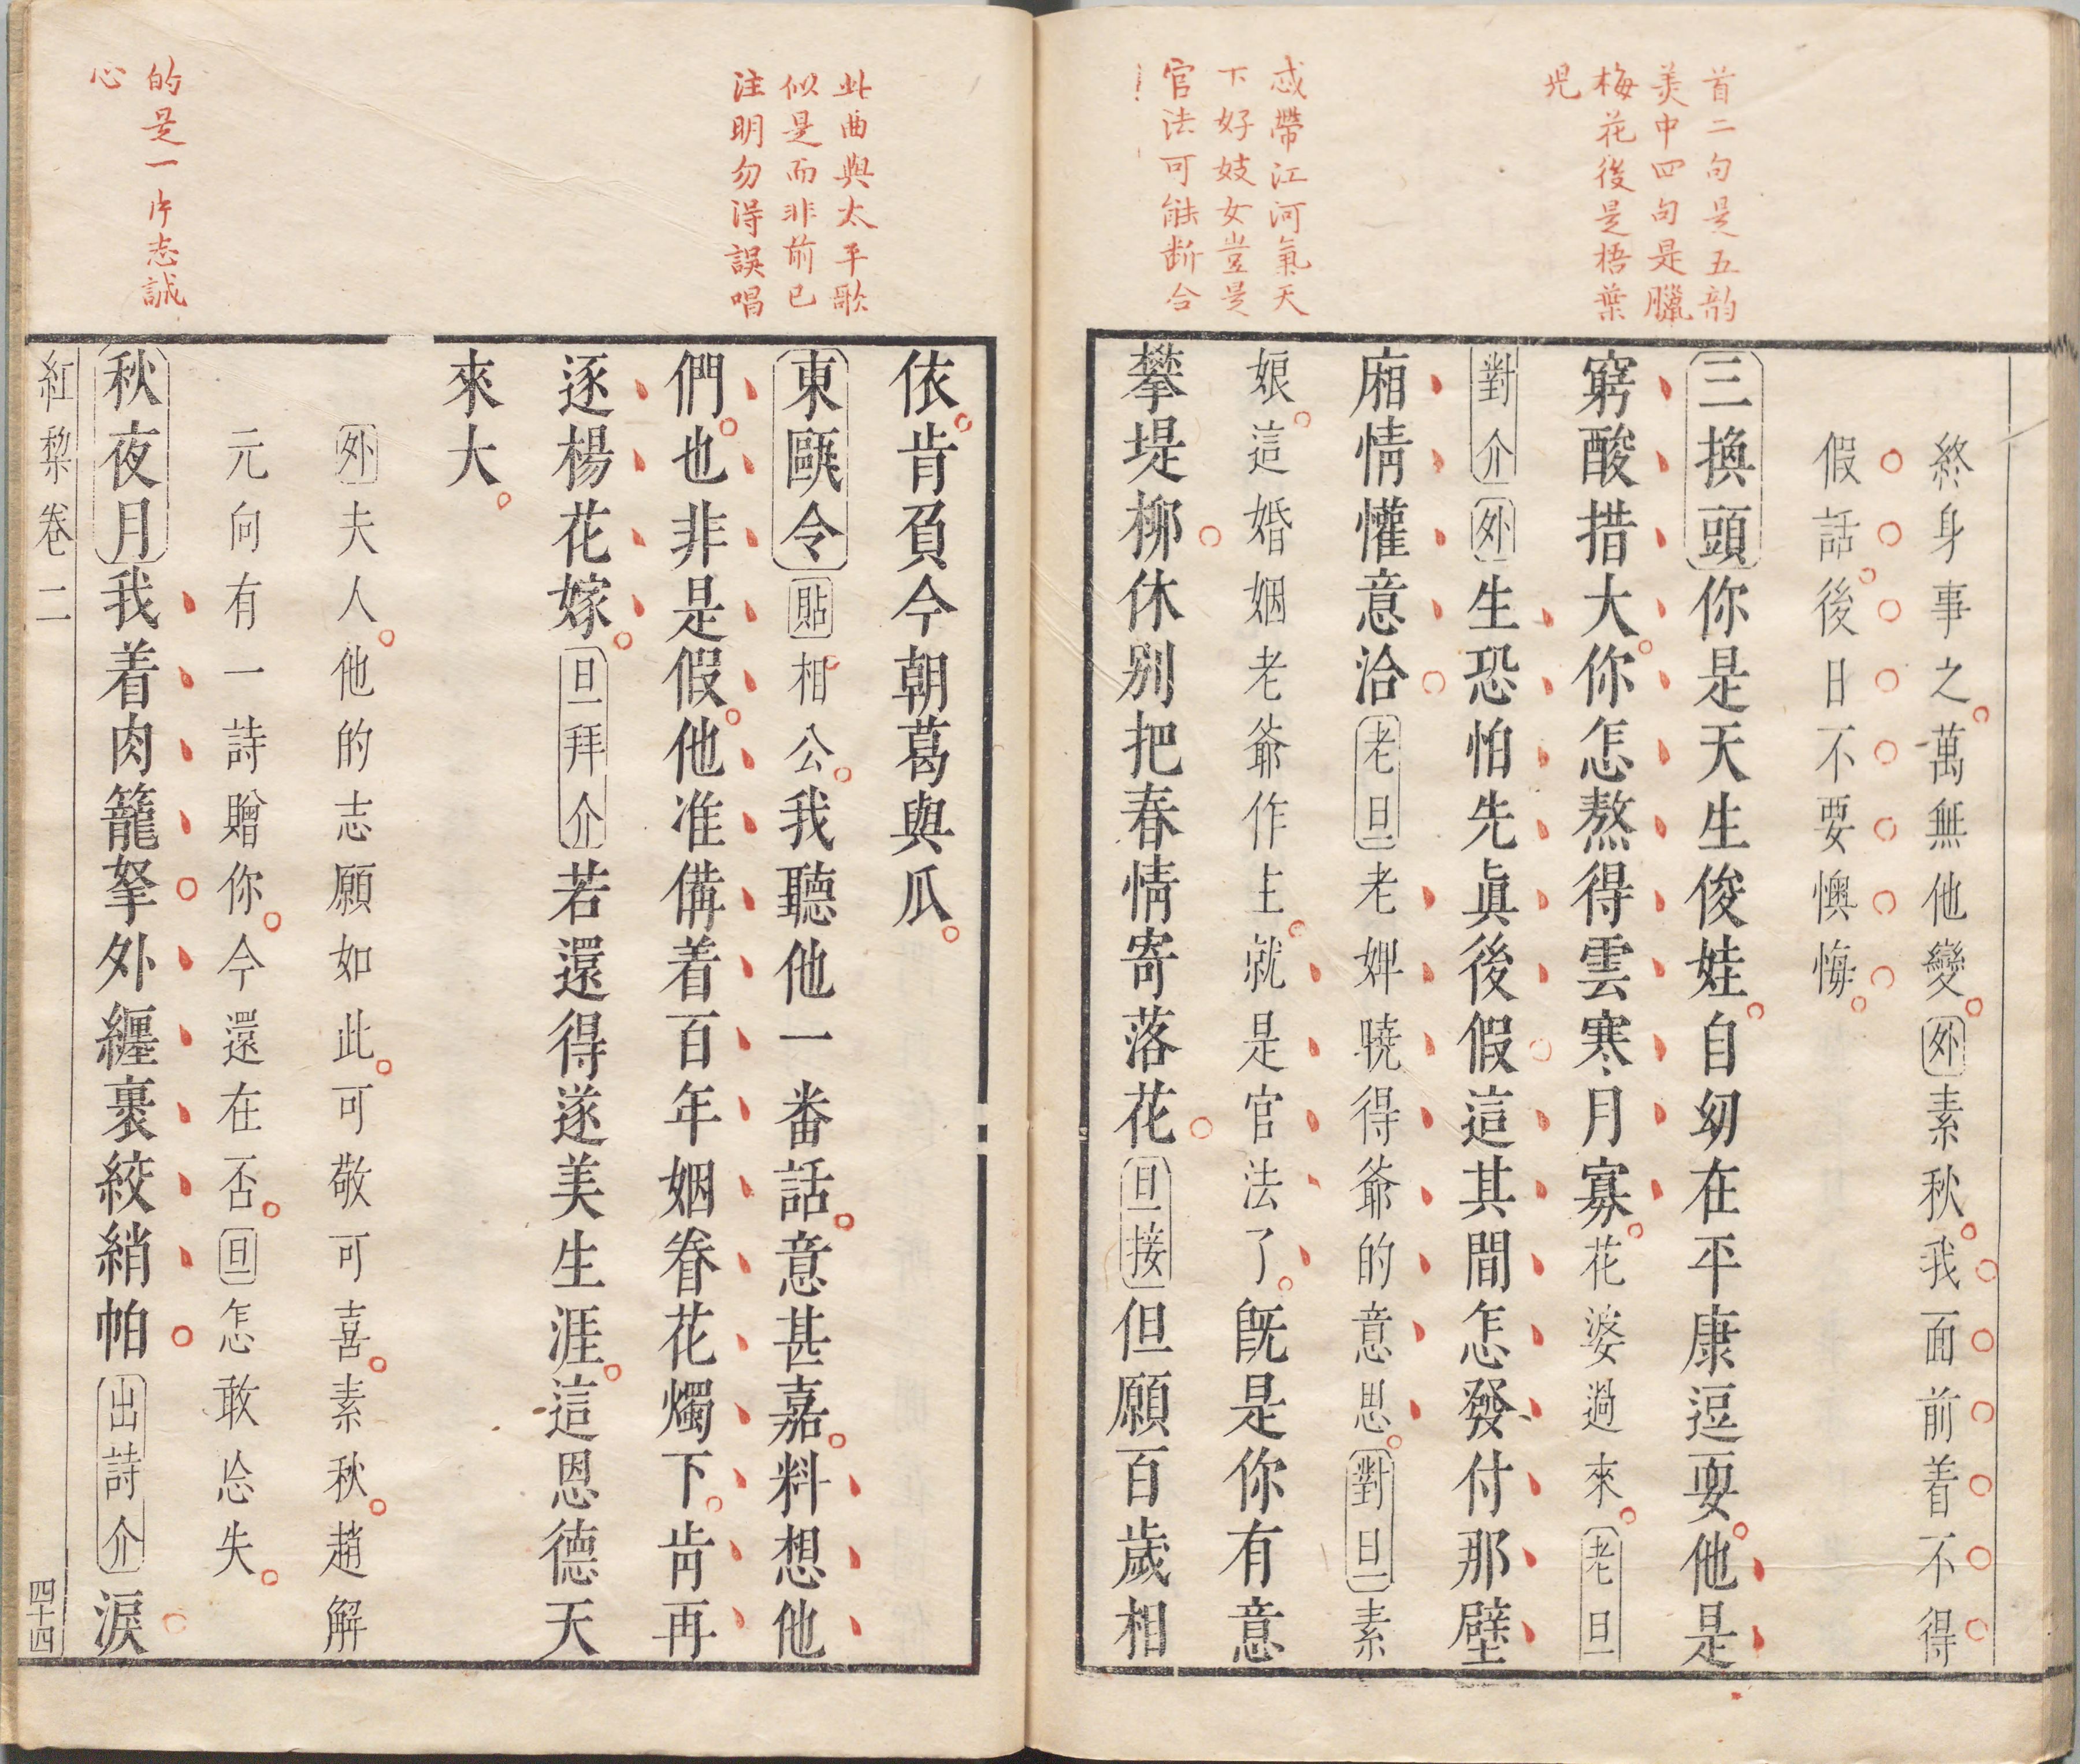 首二句是五韵
美中四句是臘
梅花後是梧葉
兒
忒帶江河氣天
下好妓女豈是
官法可能斷合
終身事之萬無他變外素秋我面前着不得
假話後日不要懊悔
三換頭你是天生俊娃自幼在平康逗耍他是
窮酸措大你怎熬得雲寒月寡花婆過來老旦
對介外生恐怕先眞後假這其間怎發付那壁
廂情懽意洽老旦老婢曉得爺的意思對旦素
娘這婚姻老爺作主就是官法了旣是你有意
攀堤柳休別把春情寄落花旦接但願百歲相
此曲與太平歌
似是而非前已
注明勿得誤唱
的是一片志誠
心
依肯負今朝葛與瓜
東甌令貼相公我聽他一番話意甚嘉料想他
們也非是假他准備着百年姻眷花燭下肯再
逐楊花嫁旦拜介若還得遂美生涯這恩德天
來大
外夫人他的志願如此可敬可喜素秋趙解
元向有一詩贈你今還在否旦怎敢忩失
秋夜月我着肉籠拏外纒裹絞綃帕出詩介淚
紅梨卷二
四十四